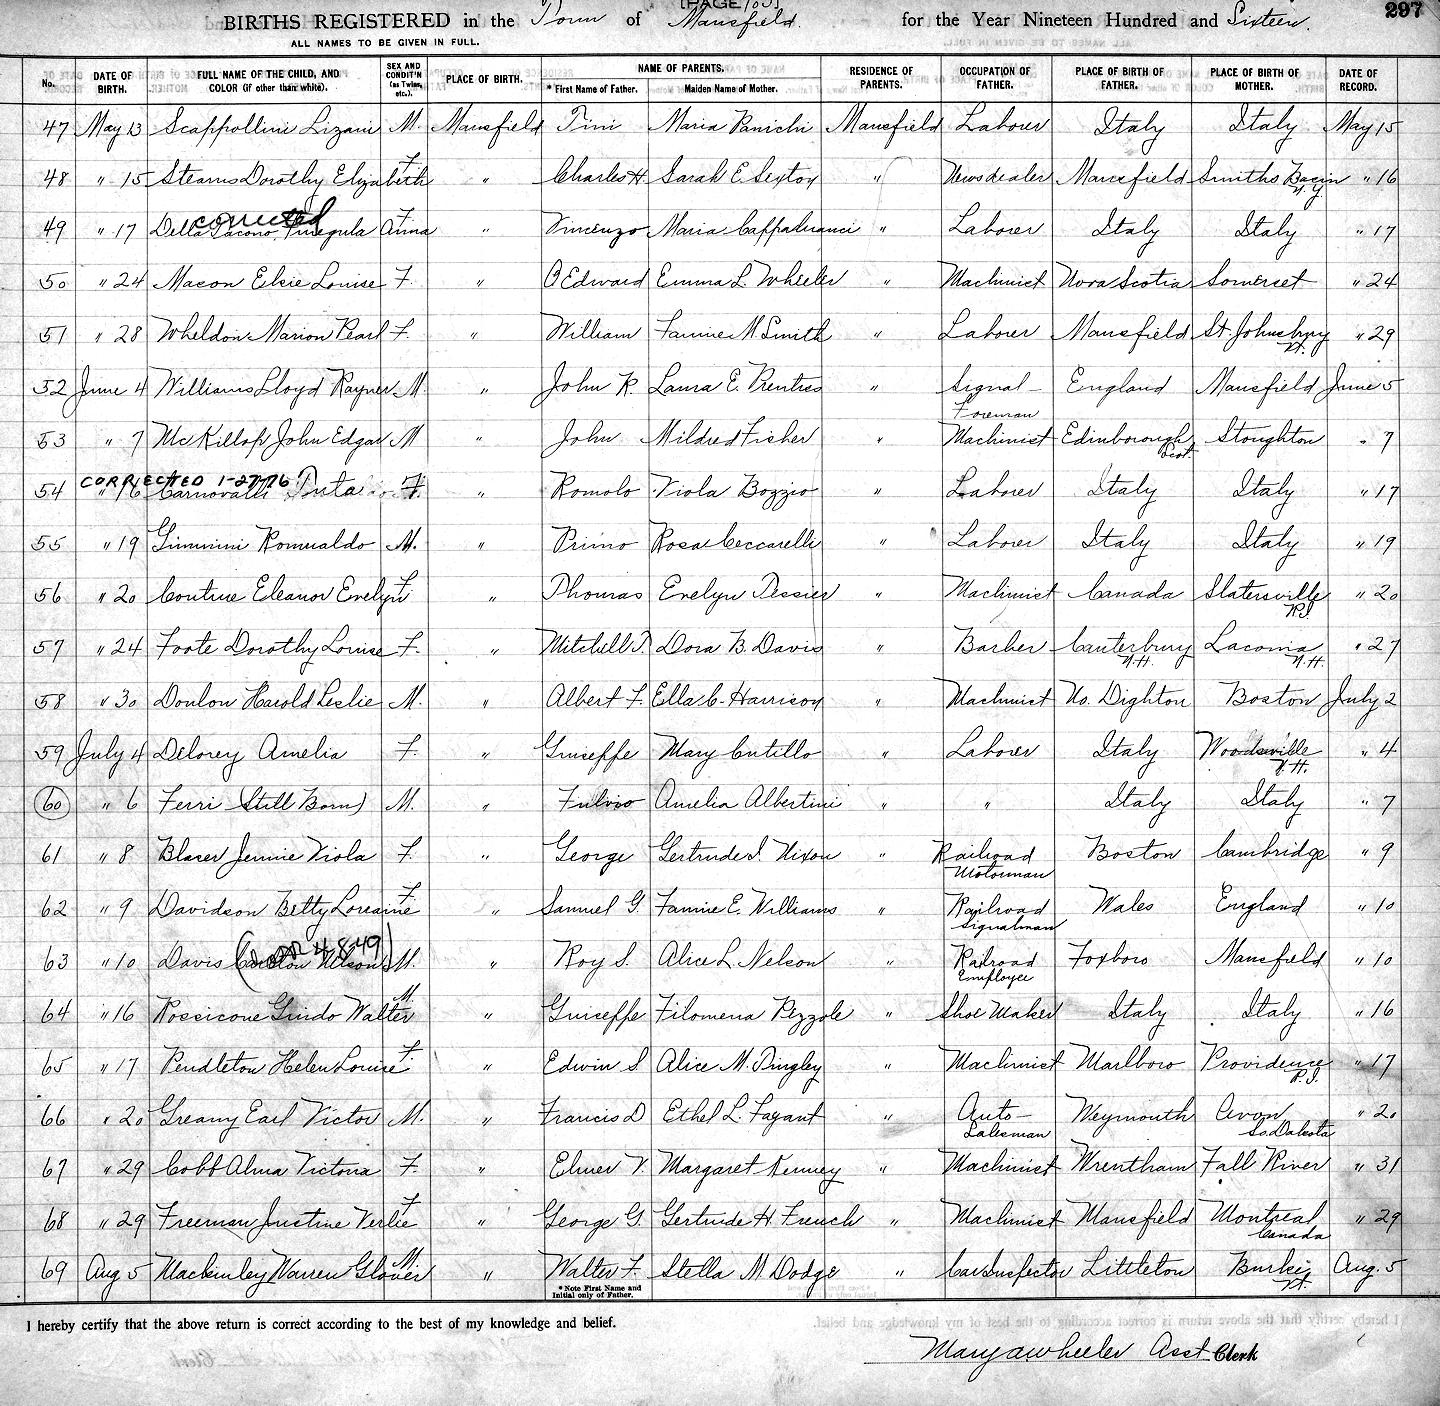 [PAGE 105]
297
BIRTHS REGISTERED in the Town of Mansfield. for the Year Nineteen Hundred and Sixteen.
ALL NAMES TO BE GIVEN IN FULL.
No. DATE OF BIRTH. FULL NAME OF THE CHILD, AND COLOR (if other than white). SEX AND CONDIT'N (as Twins, etc.). PLACE OF BIRTH. NAME OF PARENTS. * First Name of Father. Maiden Name of Mother. RESIDENCE OF PARENTS. OCCUPATION OF FATHER. PLACE OF BIRTH OF FATHER. PLACE OF BIRTH OF MOTHER. DATE OF RECORD.
47 May 13 Scappollini Lizani M. Mansfield Tini Maria Panichi Mansfield Laborer Italy Italy May 15
48 " 15 Stearns Dorothy Elizabeth F. " Charles H. Sarah E. Sexton " Newsdealer Mansfield Smiths Basin N.Y. " 16
corrected
49 " 17 Della Iacono Anna F. " Vincenzo Maria Cappabianci " Laborer Italy Italy " 17
50 " 24 Macon Elsie Louise F. " O Edward Emma L. Wheeler " Machinist Nova Scotia Somerset " 24
51 " 28 Wheldon Marion Pearl F. " William Fannie M. Smith " Laborer Mansfield St. Johnsbury Vt. " 29
52 June 4 Williams Lloyd Rayner M. " John R. Laura E. Prentiss " Signal-Foreman England Mansfield June 5
53 " 7 McKillop John Edgar M " John Mildred Fisher " Machinist Edinborough Scot. Stoughton " 7
CORRECTED 1-27-76
54 " 16 Carnovalli F. " Romolo Viola Bozzio " Laborer Italy Italy " 17
55 " 19 Gimmini Romualdo M. " Primo Rosa Ceccarelli " Laborer Italy Italy " 19
56 " 20 Couture Eleanor Evelyn F. " Thomas Evelyn Tessier " Machinist Canada Slatersville R.I. " 20
57 " 24 Foote Dorothy Louise F. " Mitchell T. Dora B. Davis " Barber Canterbury N.H. Laconia N.H. " 27
58 " 30 Donlon Harold Leslie M. " Albert F. Ella C. Harrison " Machinist No. Dighton Boston July 2
59 July 4 Delorey Amelia F. " Guiseppe Mary Cutillo " Laborer Italy Woodsville N.H. " 4
60 " 6 Ferri (Still Born) M. " Fulvio Amelia Albertini " " Italy Italy " 7
61 " 8 Blaser Jennie Viola F. " George Gertrude I. Nixon " Railroad Motorman Boston Cambridge " 9
62 " 9 Davidson Betty Loraine F. " Samuel G. Fannie E. Williams " Railroad Signalman Wales England " 10
63 " 10 Davis Carlton Nelson M. " Roy S. Alice L. Nelson " Railroad Employee Foxboro Mansfield " 10
64 " 16 Rossicone Guido Walter M. " Guiseppe Filomena Pezzole " Shoe Maker Italy Italy " 16
65 " 17 Pendleton Helen Louise F. " Edwin S Alice M. Dingley " Machinist Marlboro Providence R.I. " 17
66 " 20 Greany Earl Victor M. " Francis D Ethel L. Fayant " Auto-Salesman Weymouth Avon So. Dakota " 20
67 " 29 Cobb Alma Victoria F. " Elmer V. Margaret Kenney " Machinist Wrentham Fall River " 31
68 " 29 Freeman Justine Verlie F " George G. Gertrude H. French " Machinist Mansfield Montreal Canada " 29
69 Aug 5 Mackinley Warren Glover M. " Walter F. Stella M Dodge " Car Inspector Littleton Burke Vt. Aug. 5
* Note First Name and Initial only of Father.
I hereby certify that the above return is correct according to the best of my knowledge and belief.
Mary A Wheeler Asst Clerk